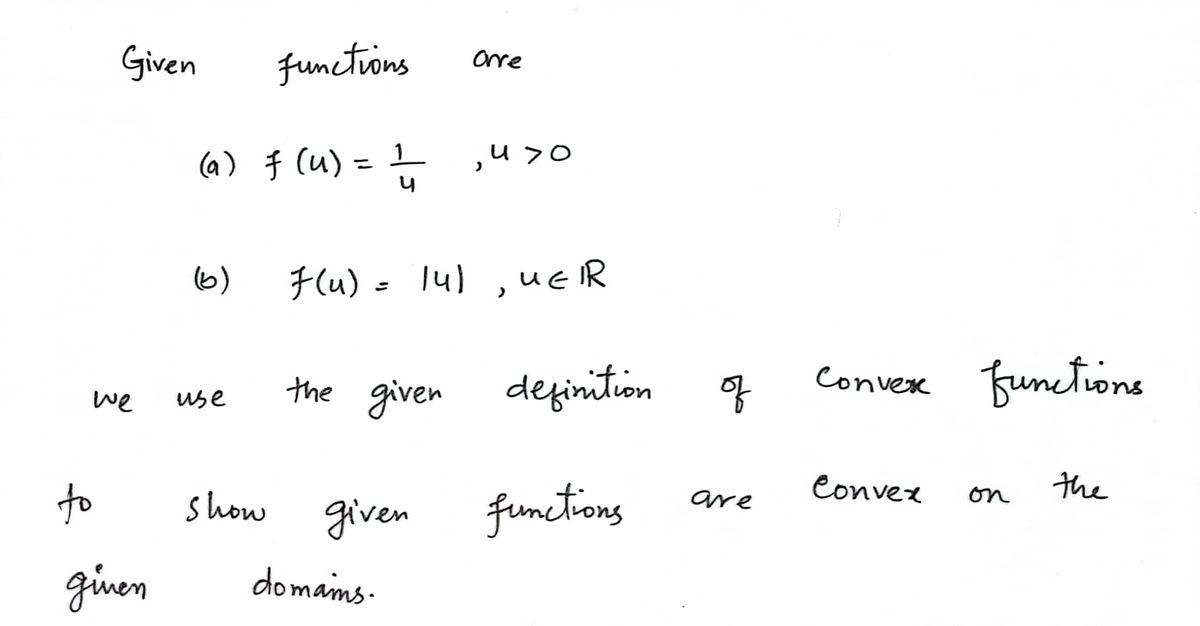 Given functions are
(a) f(u) = 1/u , u > 0
(b) f(u) = |u| , u ∈ ℝ
we use the given definition of Convex functions
to show given functions are Convex on the
given domains.